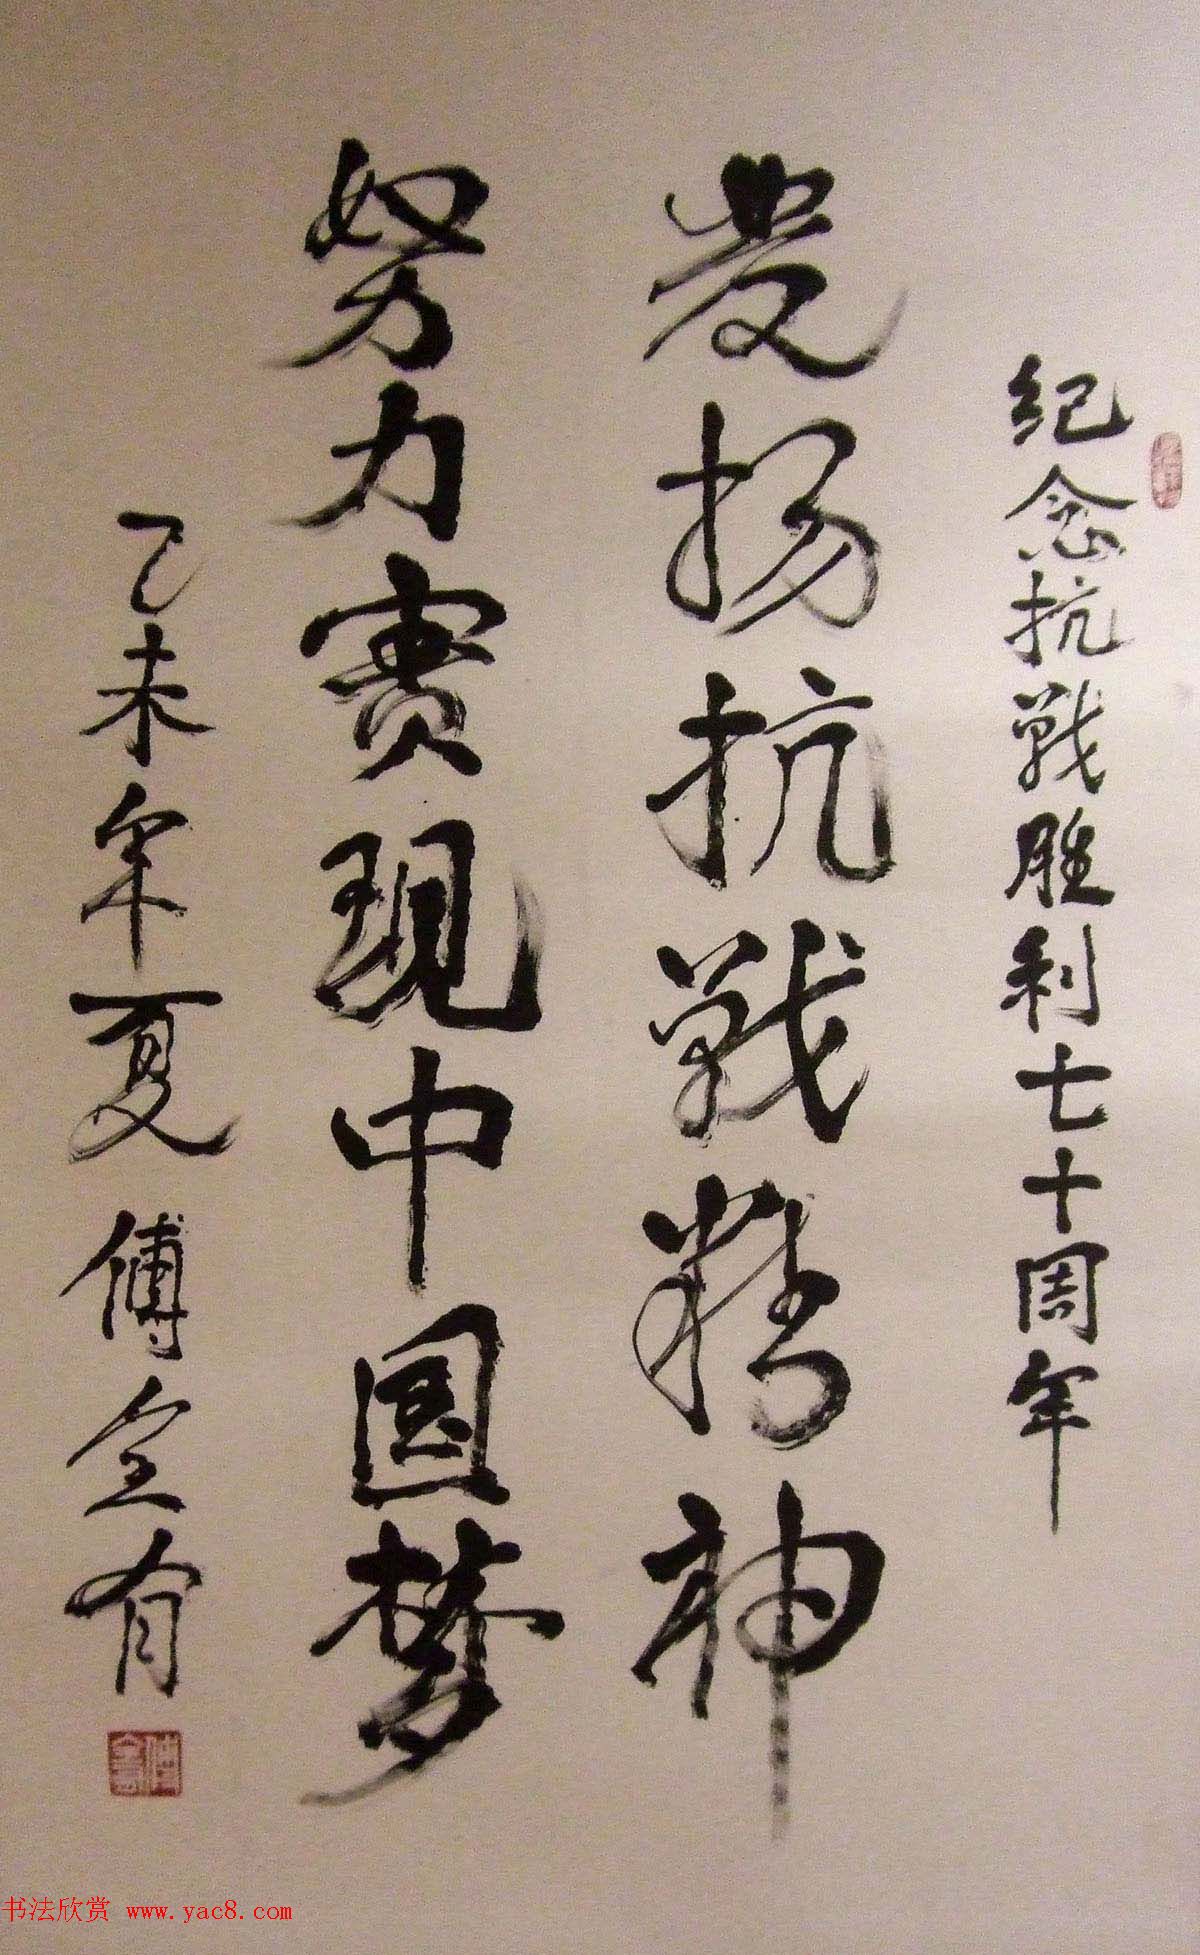 纪念抗戰胜利七十周年
发扬抗戰精神
努力實現中國梦
乙未年夏 傅全有
书法欣赏 www.yac8.com